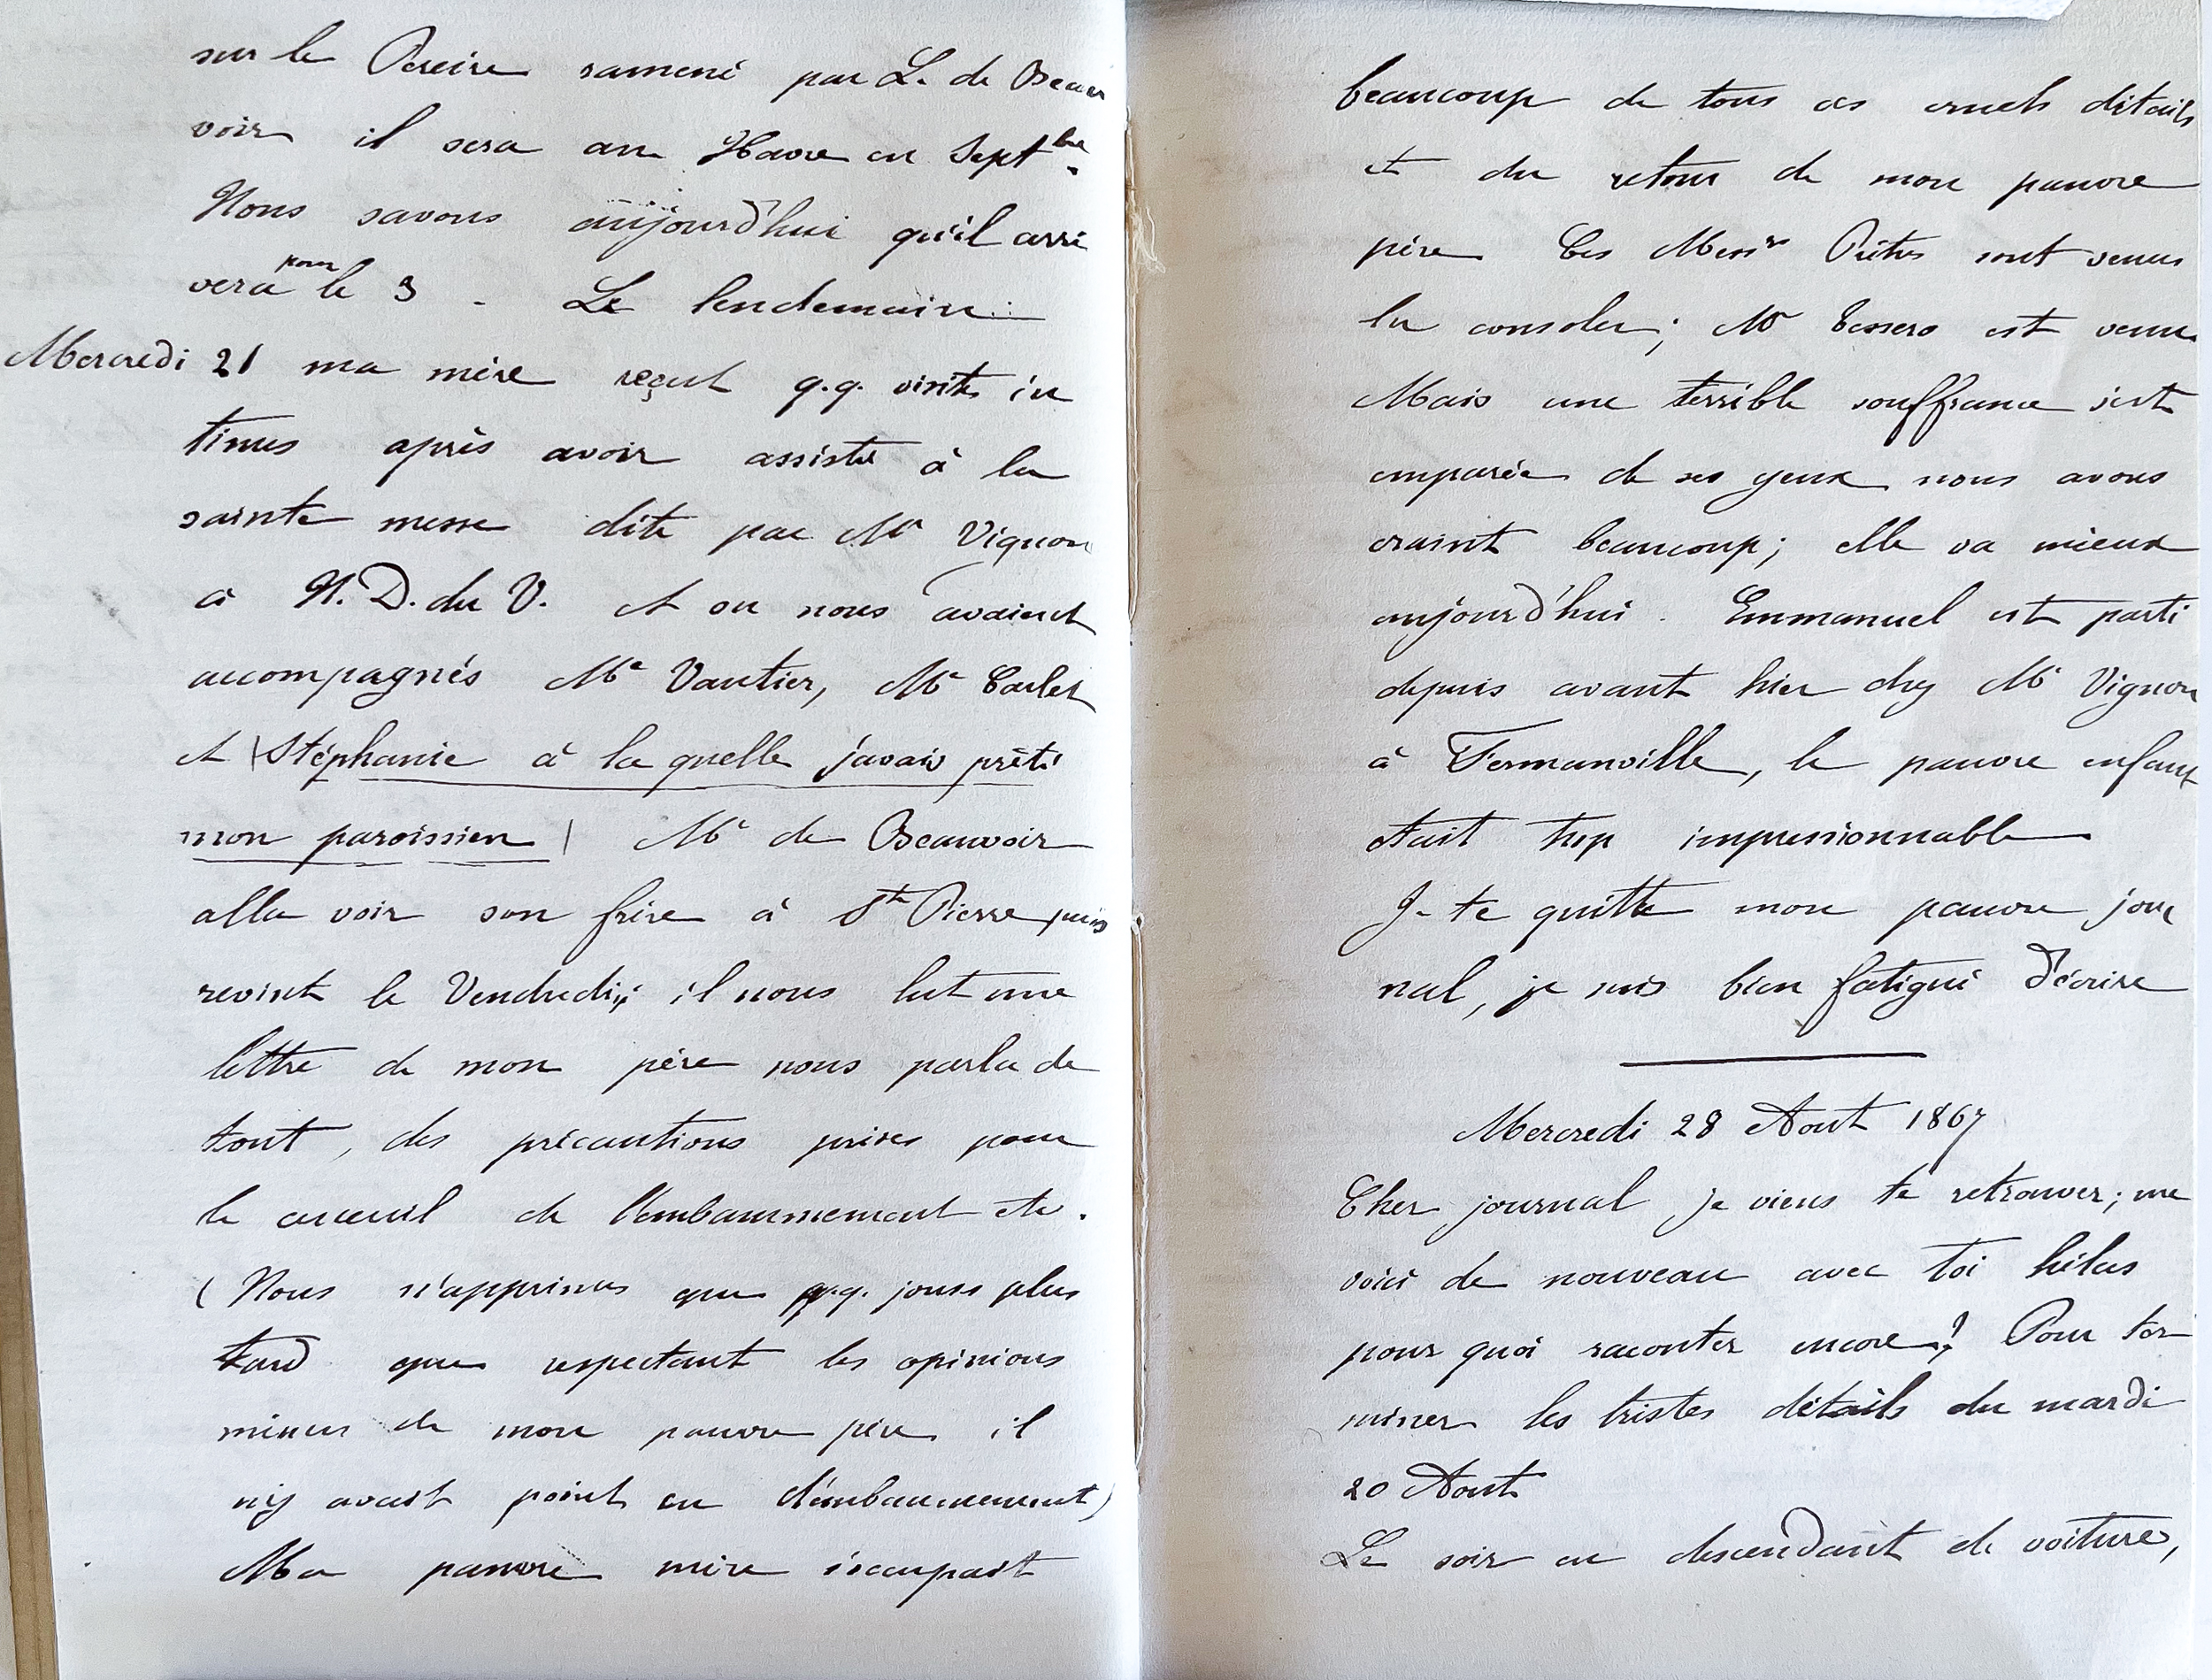 sur le Pereire ramené par L. de Beau
voir il sera au Havre en Septbre.
Nous savons aujourd'hui qu'il arri
vera pour le 3 - Le lendemain
Mercredi 21 ma mère reçut q.q. visites in
times après avoir assisté à la
sainte messe dite par Mr Vignon
à N. D. du V. et ou nous avaient
accompagnés Me Vautier, Me Carlet
et (Stéphanie à la quelle j'avais prêté
mon paroissien) Mr de Beauvoir
alla voir son frère à St Pierre puis
revint le Vendredi; il nous lut une
lettre de mon père nous parla de
tout, des précautions prises pour
le cerceuil de l'embaummement etc.
(Nous n'apprimes que q.q. jours plus
tard que respectant les opinions
mieux de mon pauvre père il
n'y avait point eu d'embaumement)
Ma pauvre mère s'occupait
beaucoup de tous ces cruels détails
et du retour de mon pauvre
père Ces Messrs Piètri sont venus
la consoler; Mr Tessero est venu
Mais une terrible souffrance s'est
emparée de ses yeux nous avons
craint beaucoup; elle va mieux
aujourd'hui. Emmanuel est parti
depuis avant hier chez Mr Vignon
à Fermanville, le pauvre enfant
était trop impressionnable
Je te quitte mon pauvre jour
nal, je suis bien fatigué d'écrire
Mercredi 28 Aout 1867
Cher journal je viens te retrouver; me
voici de nouveau avec toi hélas
pour quoi raconter encore? Pour ter
miner les tristes détails du mardi
20 Aout
Le soir en descendant de voiture,